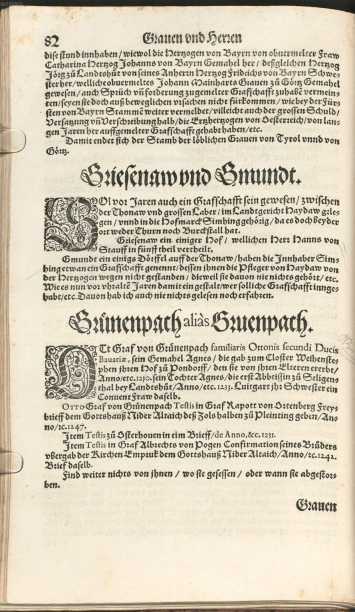 82 Grauen vnd Herren
dise stund innhaben / wiewol die Hertzogen von Bayrn von obuermelter Fraw
Catharina Hertzog Johanns von Bayrn Gemahel her / deßgleichen Hertzog
Jörg zů Landshůt von seines Anherrn Hertzog Fridrichs von Bayrn Schwe-
ster her / welliche obuermeltes Johann Mainharts Grauen zů Görtz Gemahel
gewesen / auch Sprüch vñ forderung zugemelter Grafschafft zuhabẽ vermein-
ten / seyen sie doch auß beweglichen vrsachen nicht fürkommen / wie bey der Für-
sten von Bayrn Stammẽ weiter vermeldet / villeicht auch der grossen Schuld /
Versatzung vñ Verschreibung halb / die Ertzhertzogen von Oesterreich / von lan-
gen Jaren her auff gemelter Grafschafft gehabt haben / etc.
Damit endet sich der Stamb der löblichen Grauen von Tyrol vnnd von
Görtz.
Griesenaw vnd Gmundt.
SOl vor Jaren auch ein Grafschafft sein gewesen / zwischen
der Thonaw vnd grossen Laber / im Landtgericht Haydaw gele-
gen / vnnd in die Hofmarch Simbing gehörig / da es doch bey der
ort weder Thurn noch Burckstall hat.
Griesenaw ein einiger Hof / wellichen Herr Hanns von
Stauff in fünff theil vertheilt.
Gmundt ein einigs Dörffel auff der Thonaw / haben die Innhaber Sim-
bing etwan ein Grafschafft genennt / dessen jhnen die Pfleger von Haydaw von
der Hertzogen wegen nicht gestanden / dieweil sie dauon nie nichts gehört / etc.
Wie es nun vor vhraltẽ Jaren damit ein gestalt / wer sölliche Grafschafft inngeha-
habt / etc. Dauon hab ich auch nie nichts gelesen noch erfahren.
Grünenpach aliàs Gruenpach.
OTt Graf von Grünenpach familiaris Ottonis secundi Ducis
Bauariæ, sein Gemahel Agnes / die gab zum Closter Weihenste-
phen jhren Hof zů Pondorff / den sie von jhren Eltern ererbt /
Anno / etc. 1230. sein Tochter Agnes / die erst Abbtissin zů Seligen-
thal bey Landshůt / Anno / etc. 1231. Luitgart jhr Schwester ein
Conuent Fraw daselb.
OTTO Graf von Grünenpach Testis in Graf Rapott von Ortenberg Frey-
brieff dem Gottshauß Nider Altaich deß Zols halben zů Pleinting geben / An-
no / rc. 1247.
Item Testis zů Osterhouen in eim Brieff / de Anno, &c. 1231.
Item Testis in Graf Albrechts von Pogen Confirmation seines Brůders
vbergab der Kirchen Empiuk dem Gottshauß Nider Altaich / Anno / rc. 1242.
Brief daselb.
Find weiter nichts von jhnen / wo sie gesessen / oder wann sie abgestor-
ben.
Grauen